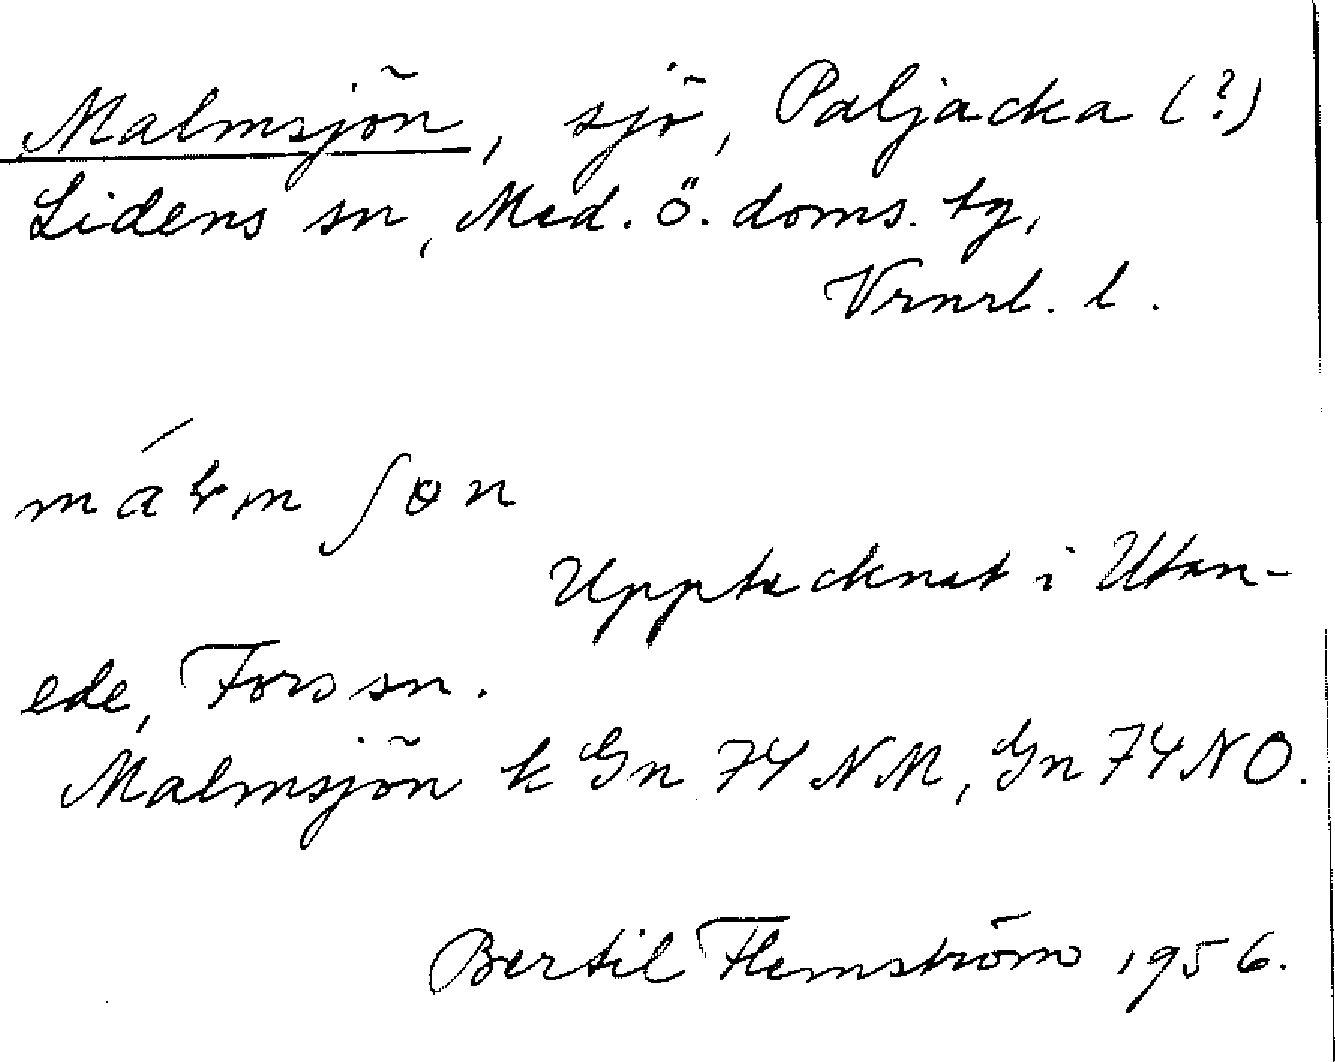 Malmsjön, sjö, Paljacka (?)
Lidens sn, Med. ö. doms. tg,
Vrnrl. l.
Upptecknat i Utan-
ede, Fors sn.
Malmsjön k Gn 74 NM, Gn 74 NO.
Bertil Flemström 1956.